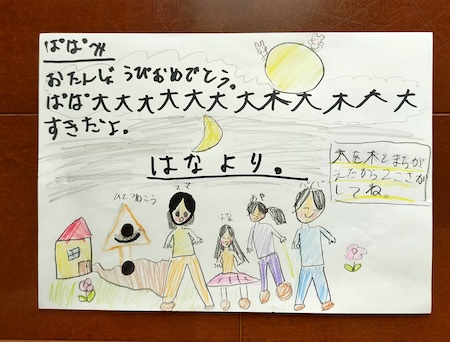 ぱぱへ
おたんじょうびおめでとう。
ぱぱ大大大大大大大木大木大大
すきだよ。
はなより。
大を木とまちが
えたから2こさが
してね。
ひとつめこう
ママ
はな
あや